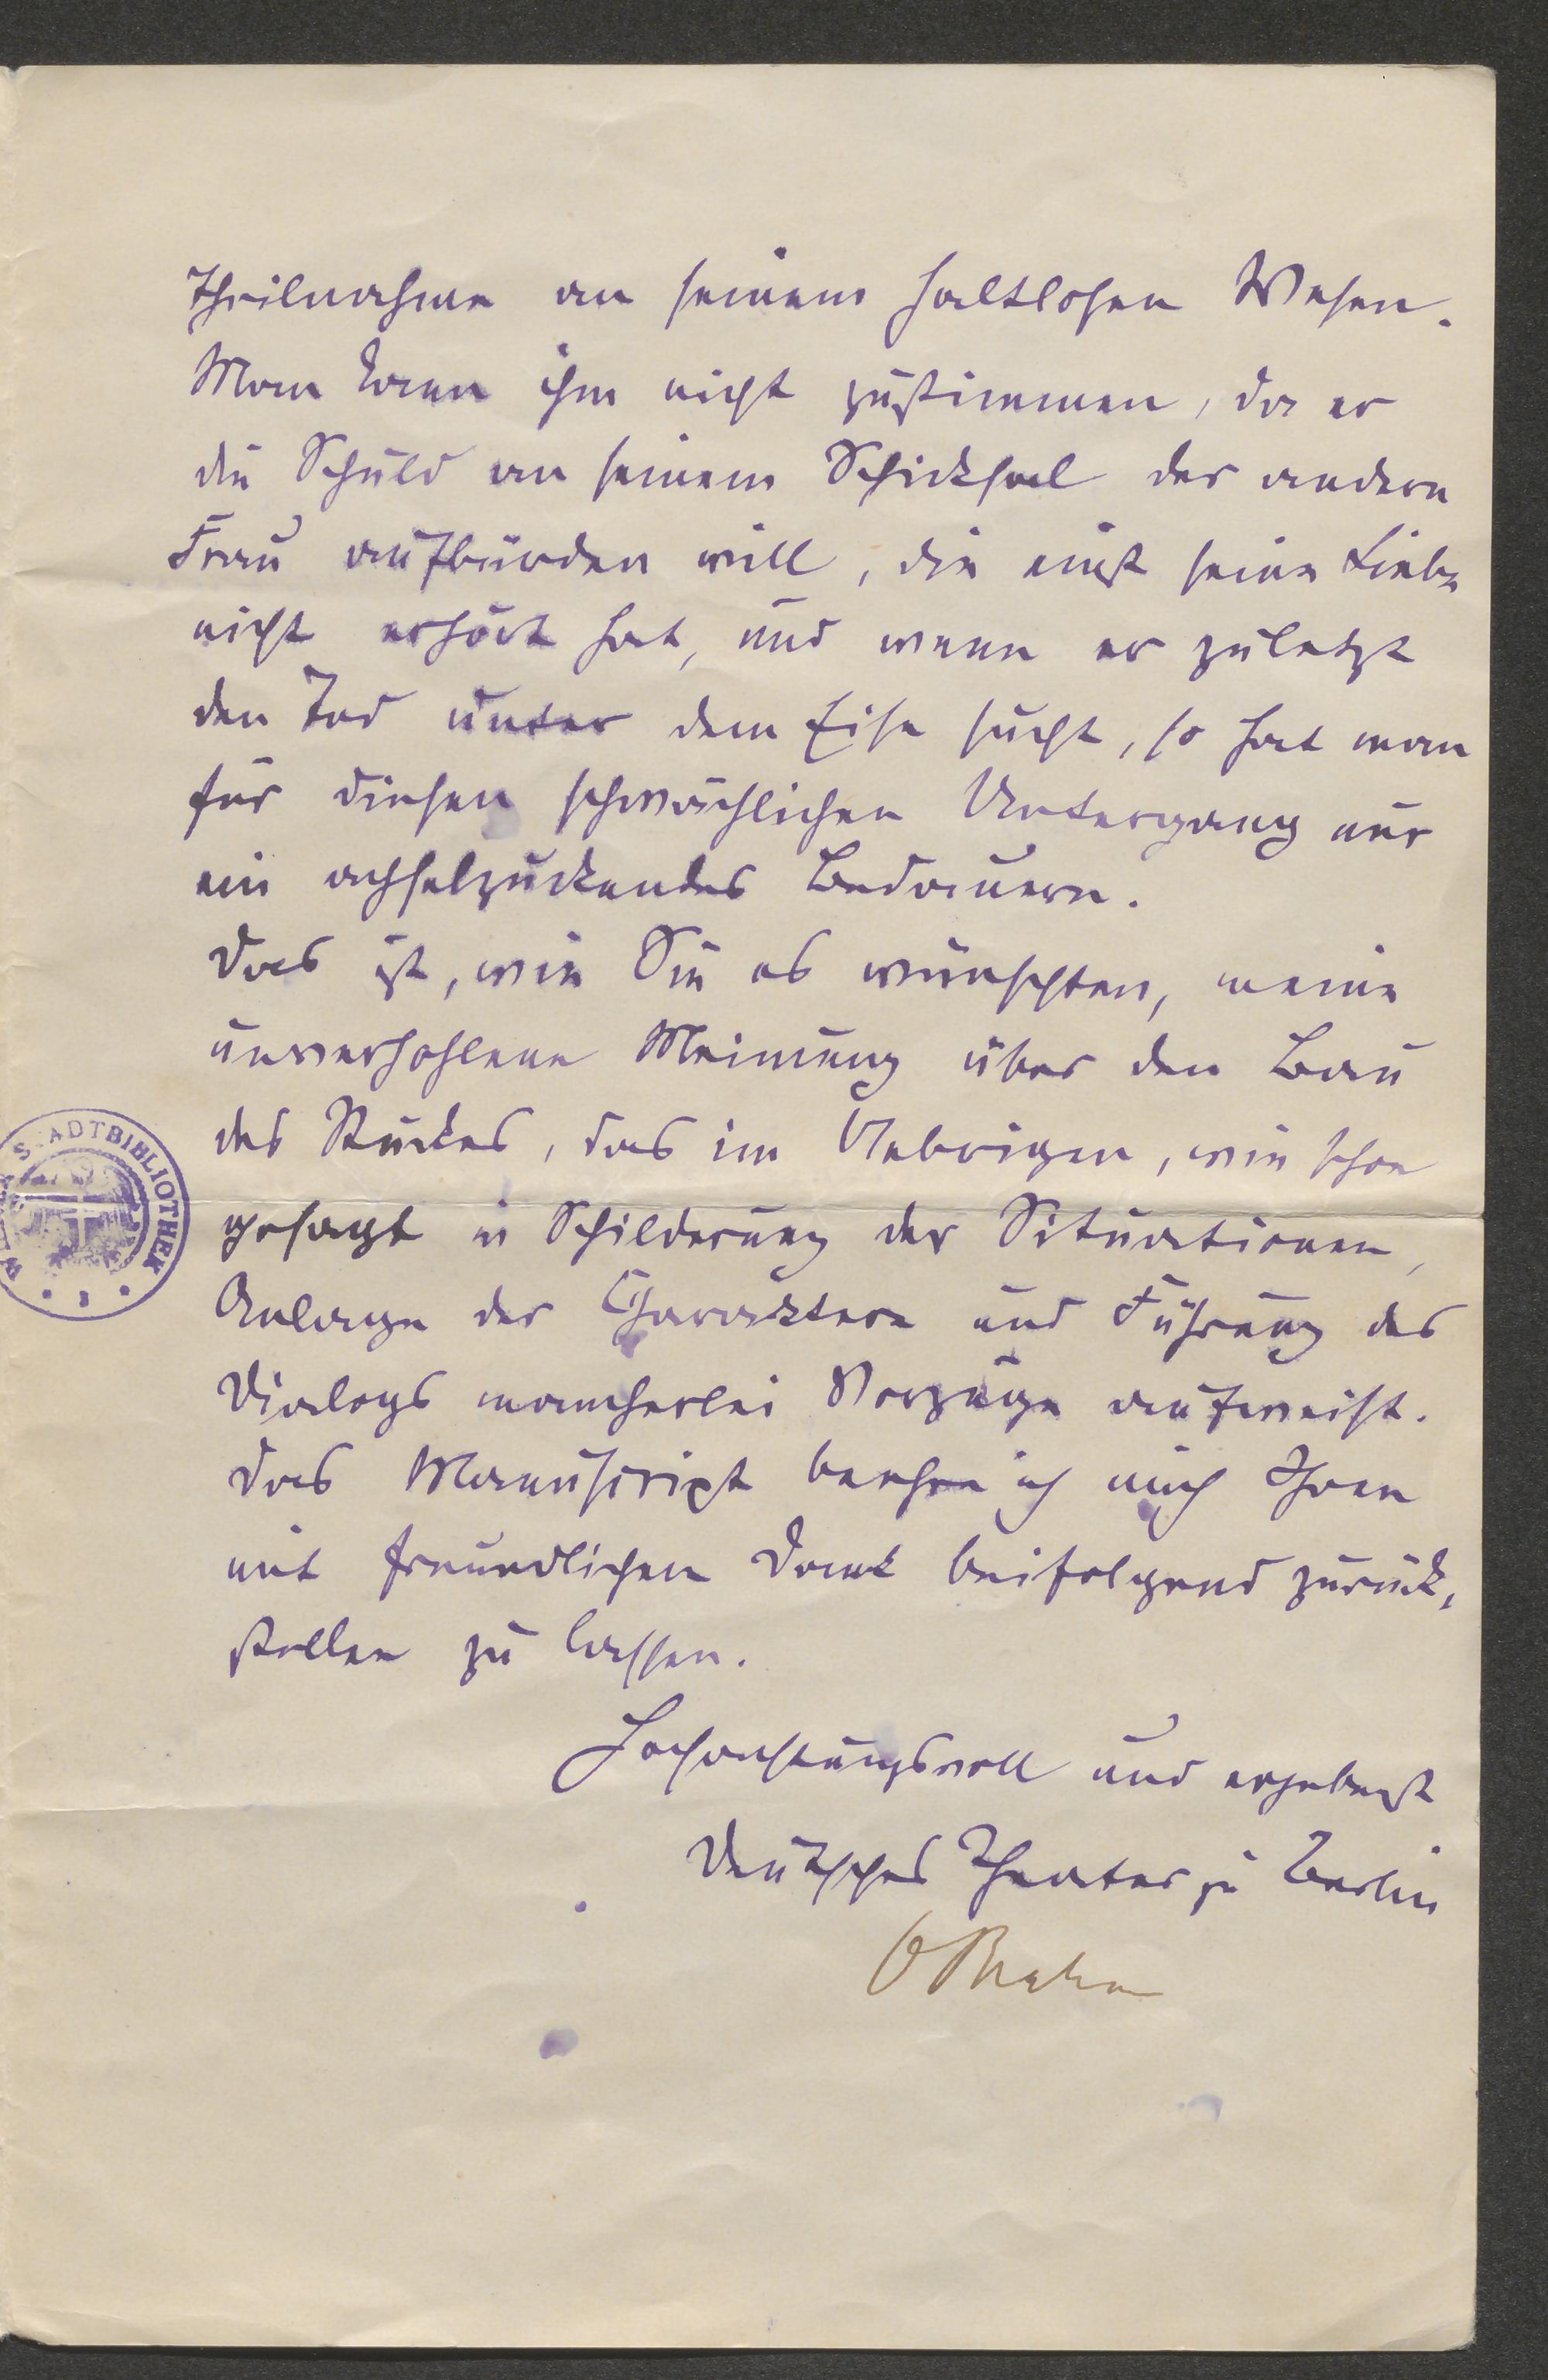 Theilnahme an seinem haltlosen Wesen.
Man kann ihm nicht zustimmen, da er
die Schuld an seinem Schicksal der andern
Frau aufbürden will, die einst seine Liebe
nicht erhört hat, und wenn er zuletzt
den Tod unter dem Eise sucht, so hat man
für diesen schwächlichen Untergang nur
ein achselzuckendes Bedauern.
Das ist, wie Sie es wünschten, meine
unverhohlene Meinung über den Bau
des Stückes, das im Uebrigen, wie schon
gesagt in Schilderung der Situationen,
Anlage der Charaktere und Führung des
Dialogs mancherlei Vorzüge aufweist.
Das Manuscript beehre ich mich Ihnen
mit freundlichem Dank beifolgend zurück-
stellen zu lassen.
Hochachtungsvoll und ergebenst
Deutsches Theater zu Berlin
OBrahm
STADTBIBLIOTHEK